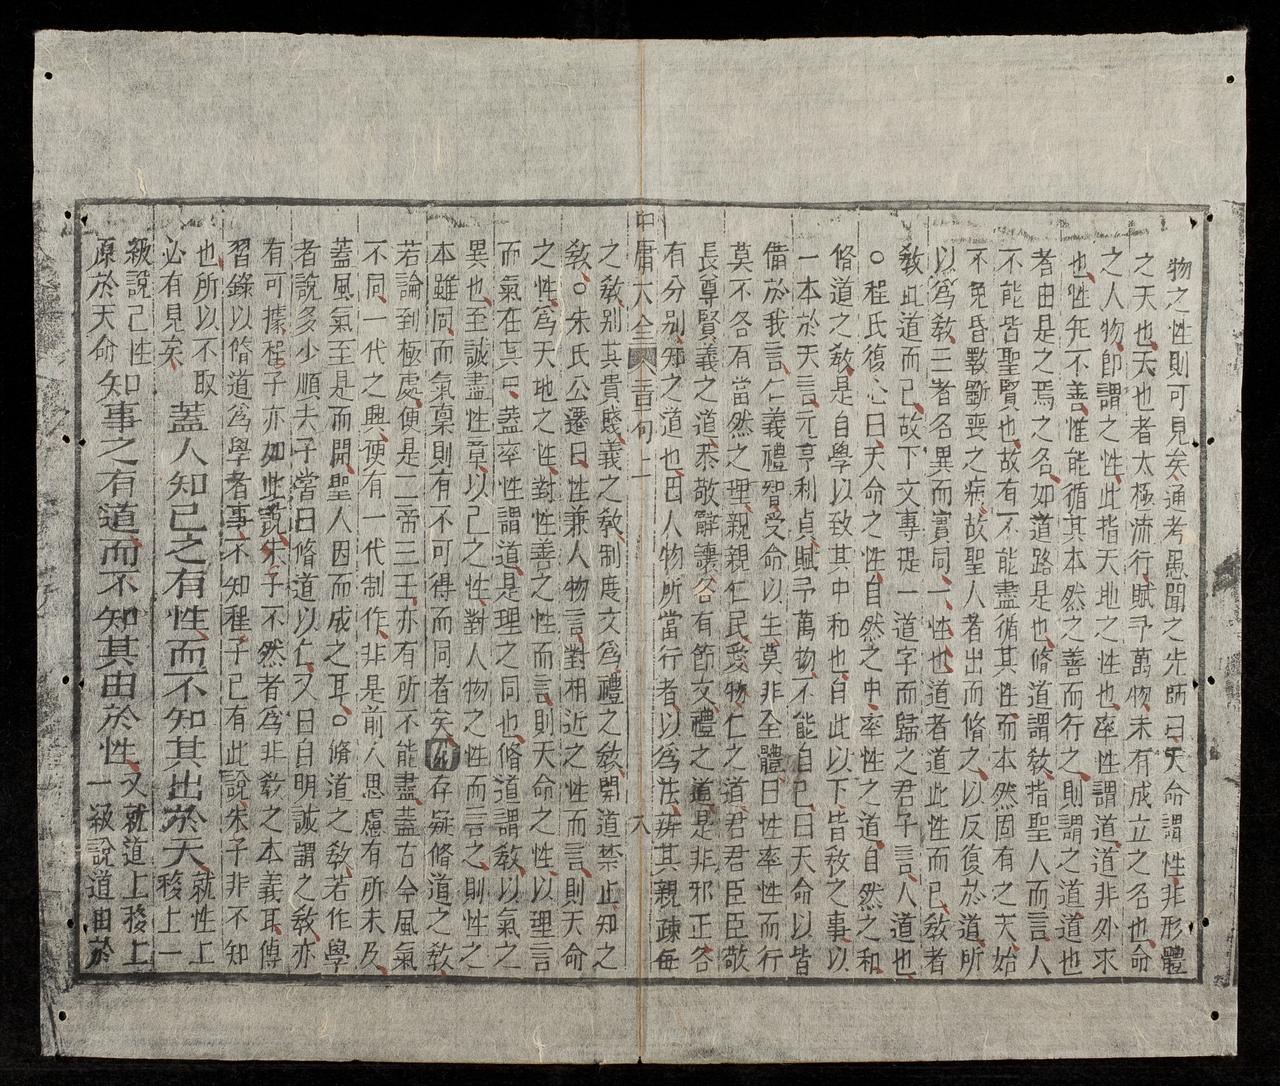 物之性則可見矣通考愚聞之先師曰天命謂性非形體
之天也天也者太極流行賦予萬物未有成立之名也命
之人物即謂之性此指天地之性也率性謂道道非外求
也性旡不善惟能循其本然之善而行之則謂之道道也
者由是之焉之名如道路是也脩道謂敎指聖人而言人
不能皆聖賢也故有不能盡循其性而本然固有之天始
不免昏斁斵喪之病故聖人者出而脩之以反復於道所
以爲敎三者名異而實同一性也道者道此性而已敎者
敎此道而已故下文專提一道字而歸之君子言人道也
○程氏復心曰天命之性自然之中率性之道自然之和
脩道之敎是自學以致其中和也自此以下皆敎之事以
一本於天言元亨利貞賦予萬物不能自已曰天命以皆
備於我言仁義禮智受命以生莫非全體曰性率性而行
莫不各有當然之理親親仁民愛物仁之道君君臣臣敬
長尊賢義之道恭敬辭讓各有節文禮之道是非邪正各
有分别知之道也因人物所當行者以爲法辨其親疎每
中庸大全 章句上 八
之敎别其貴賤義之敎制度文爲禮之敎開道禁止知之
敎○朱氏公遷曰性兼人物言對相近之性而言則天命
之性爲天地之性對性善之性而言則天命之性以理言
而氣在其中蓋率性謂道是理之同也脩道謂敎以氣之
異也至誠盡性章以己之性對人物之性而言之則性之
本雖同而氣稟則有不可得而同者矣存疑脩道之敎
若論到極處便是二帝三王亦有所不能盡蓋古今風氣
不同一代之興便有一代制作非是前人思慮有所未及
蓋風氣至是而開聖人因而成之耳○脩道之敎若作學
者說多少順夫子當曰脩道以仁又曰自明誠謂之敎亦
有可據程子亦如此說朱子不然者爲非敎之本義耳傳
習錄以脩道爲學者事不知程子已有此說朱子非不知
也所以不取
必有見矣
蓋人知己之有性而不知其出於天
就性上
移上一
級說己性
原於天命
知事之有道而不知其由於性
又就道上移上
一級說道由於